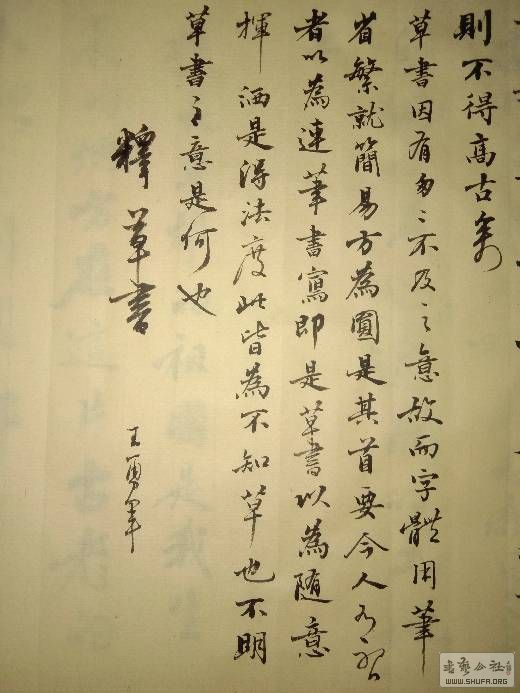 則不得高古矣
草書因有匆匆不及之意故而字體用筆
省繁就簡易方為圓是其首要今人不習
者以為連筆書寫即是草書以為隨意
揮洒是得法度此皆為不知草也不明
草書之意是何也
釋草書
王勇軍
書藝公社
WWW.SHUFA.ORG